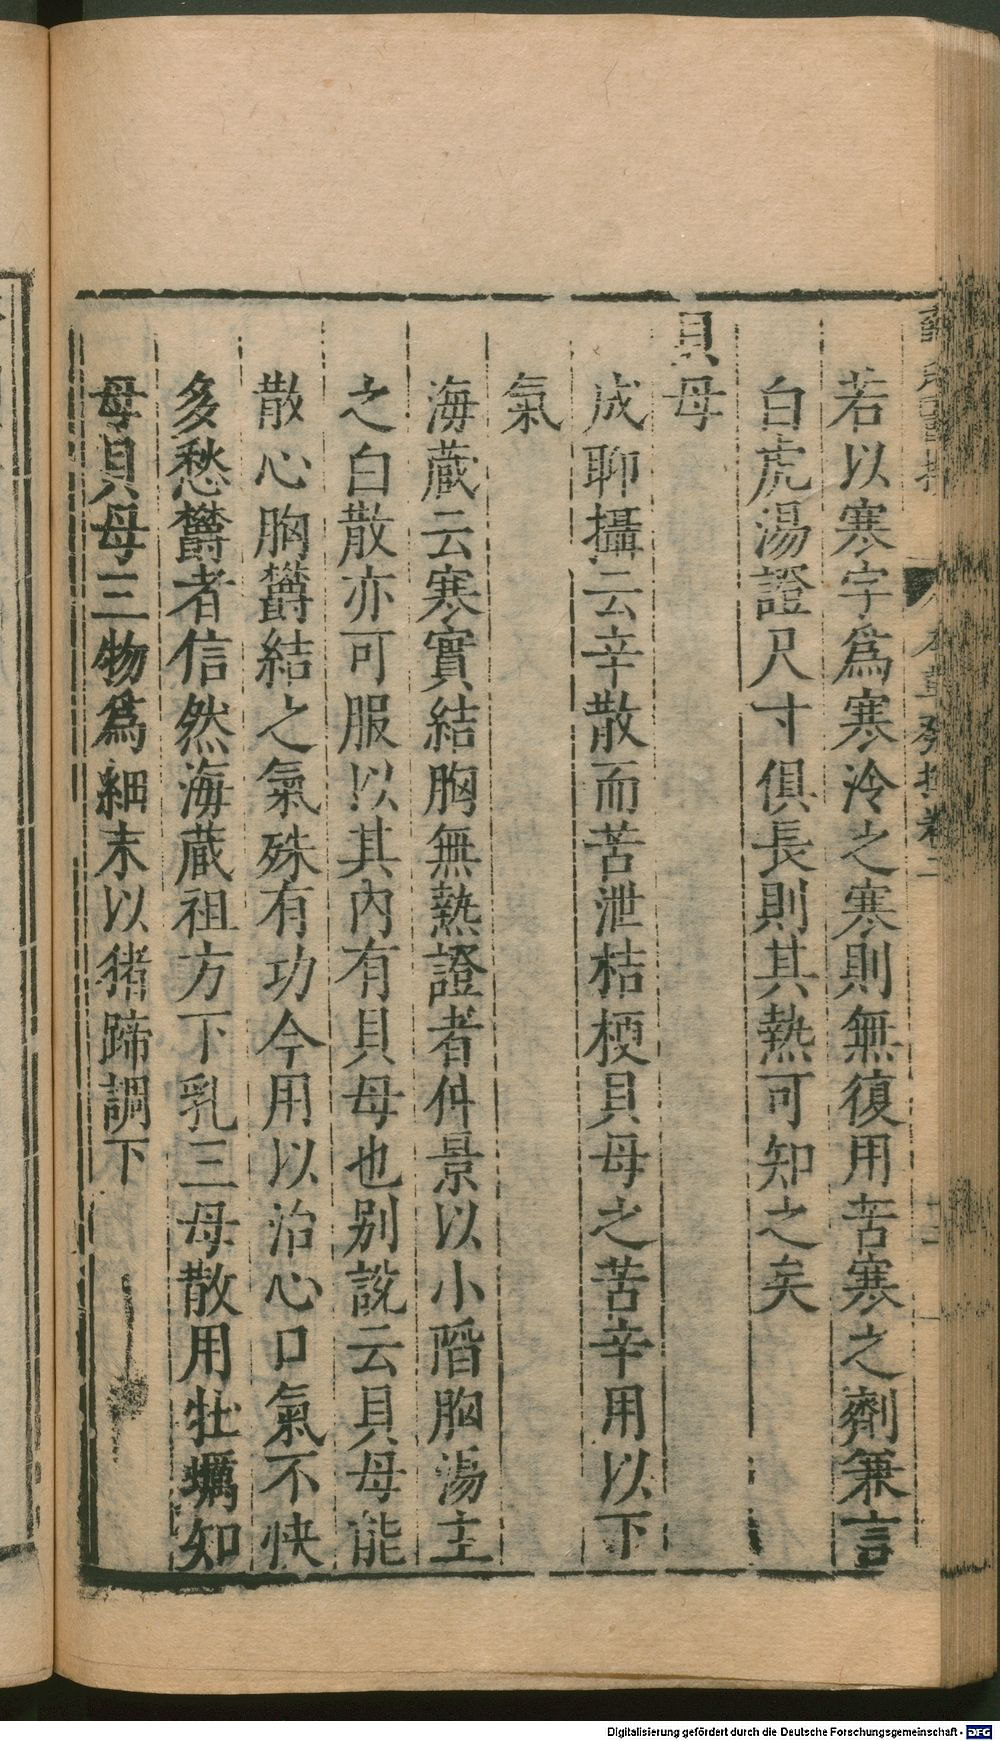 若以寒字爲寒泠之寒則無復用苦寒之劑兼言
白虎湯證尺寸俱長則其熱可知之矣
貝母
成聊攝云辛散而苦泄桔梗貝母之苦辛用以下
氣
海蔵云寒實結胸無熱證者仲景以小䧟胸湯主
之白散亦可服以其內有貝母也别說云貝母能
散心胸欝結之氣殊有功今用以治心口氣不快
多愁欝者信然海蔵祖方下乳三母散用牡蠣知
母貝母三物爲細末以猪蹄調下
Digitalisierung gefördert durch die Deutsche Forschungsgemeinschaft - DFG